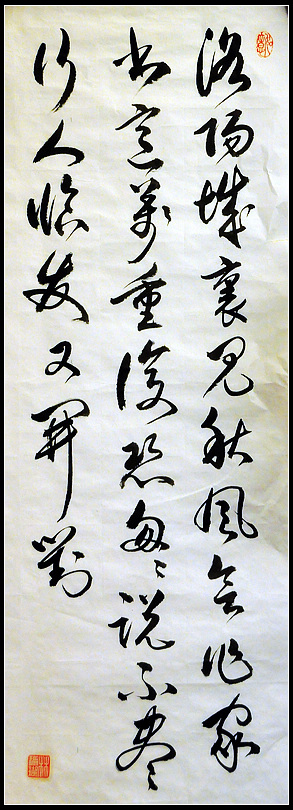 洛陽城裏見秋風欲作家
書意萬重復恐匆〻說不盡
行人臨發又開封